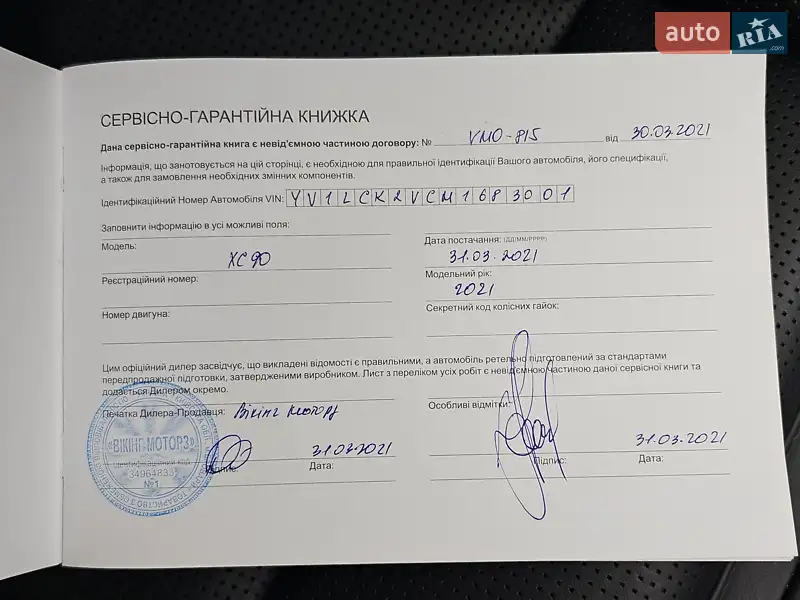 auto RIA .com
СЕРВІСНО-ГАРАНТІЙНА КНИЖКА
Дана сервісно-гарантійна книга є невід'ємною частиною договору: № VMO-815 від 30.03.2021
Інформація, що занотовується на цій сторінці, є необхідною для правильної ідентифікації Вашого автомобіля, його специфікації,
а також для замовлення необхідних змінних компонентів.
Ідентифікаційний Номер Автомобіля VIN: YV1LCK2VCM1683001
Заповнити інформацію в усі можливі поля:
Модель: XC90
Реєстраційний номер:
Номер двигуна:
Дата постачання: (ДД/ММ/РРРР)
31.03.2021
Модельний рік:
2021
Секретний код колісних гайок:
Цим офіційний дилер засвідчує, що викладені відомості є правильними, а автомобіль ретельно підготовлений за стандартами
передпродажної підготовки, затвердженими виробником. Лист з переліком усіх робіт є невід'ємною частиною даної сервісної книги та
додається Дилером окремо.
Печатка Дилера-Продавця: Вікінг Моторз
Особливі відмітки:
«ВІКІНГ МОТОРЗ»
Ідентифікаційний код
34964833
№1
Підпис: Дата: 31.03.2021
Підпис: Дата: 31.03.2021